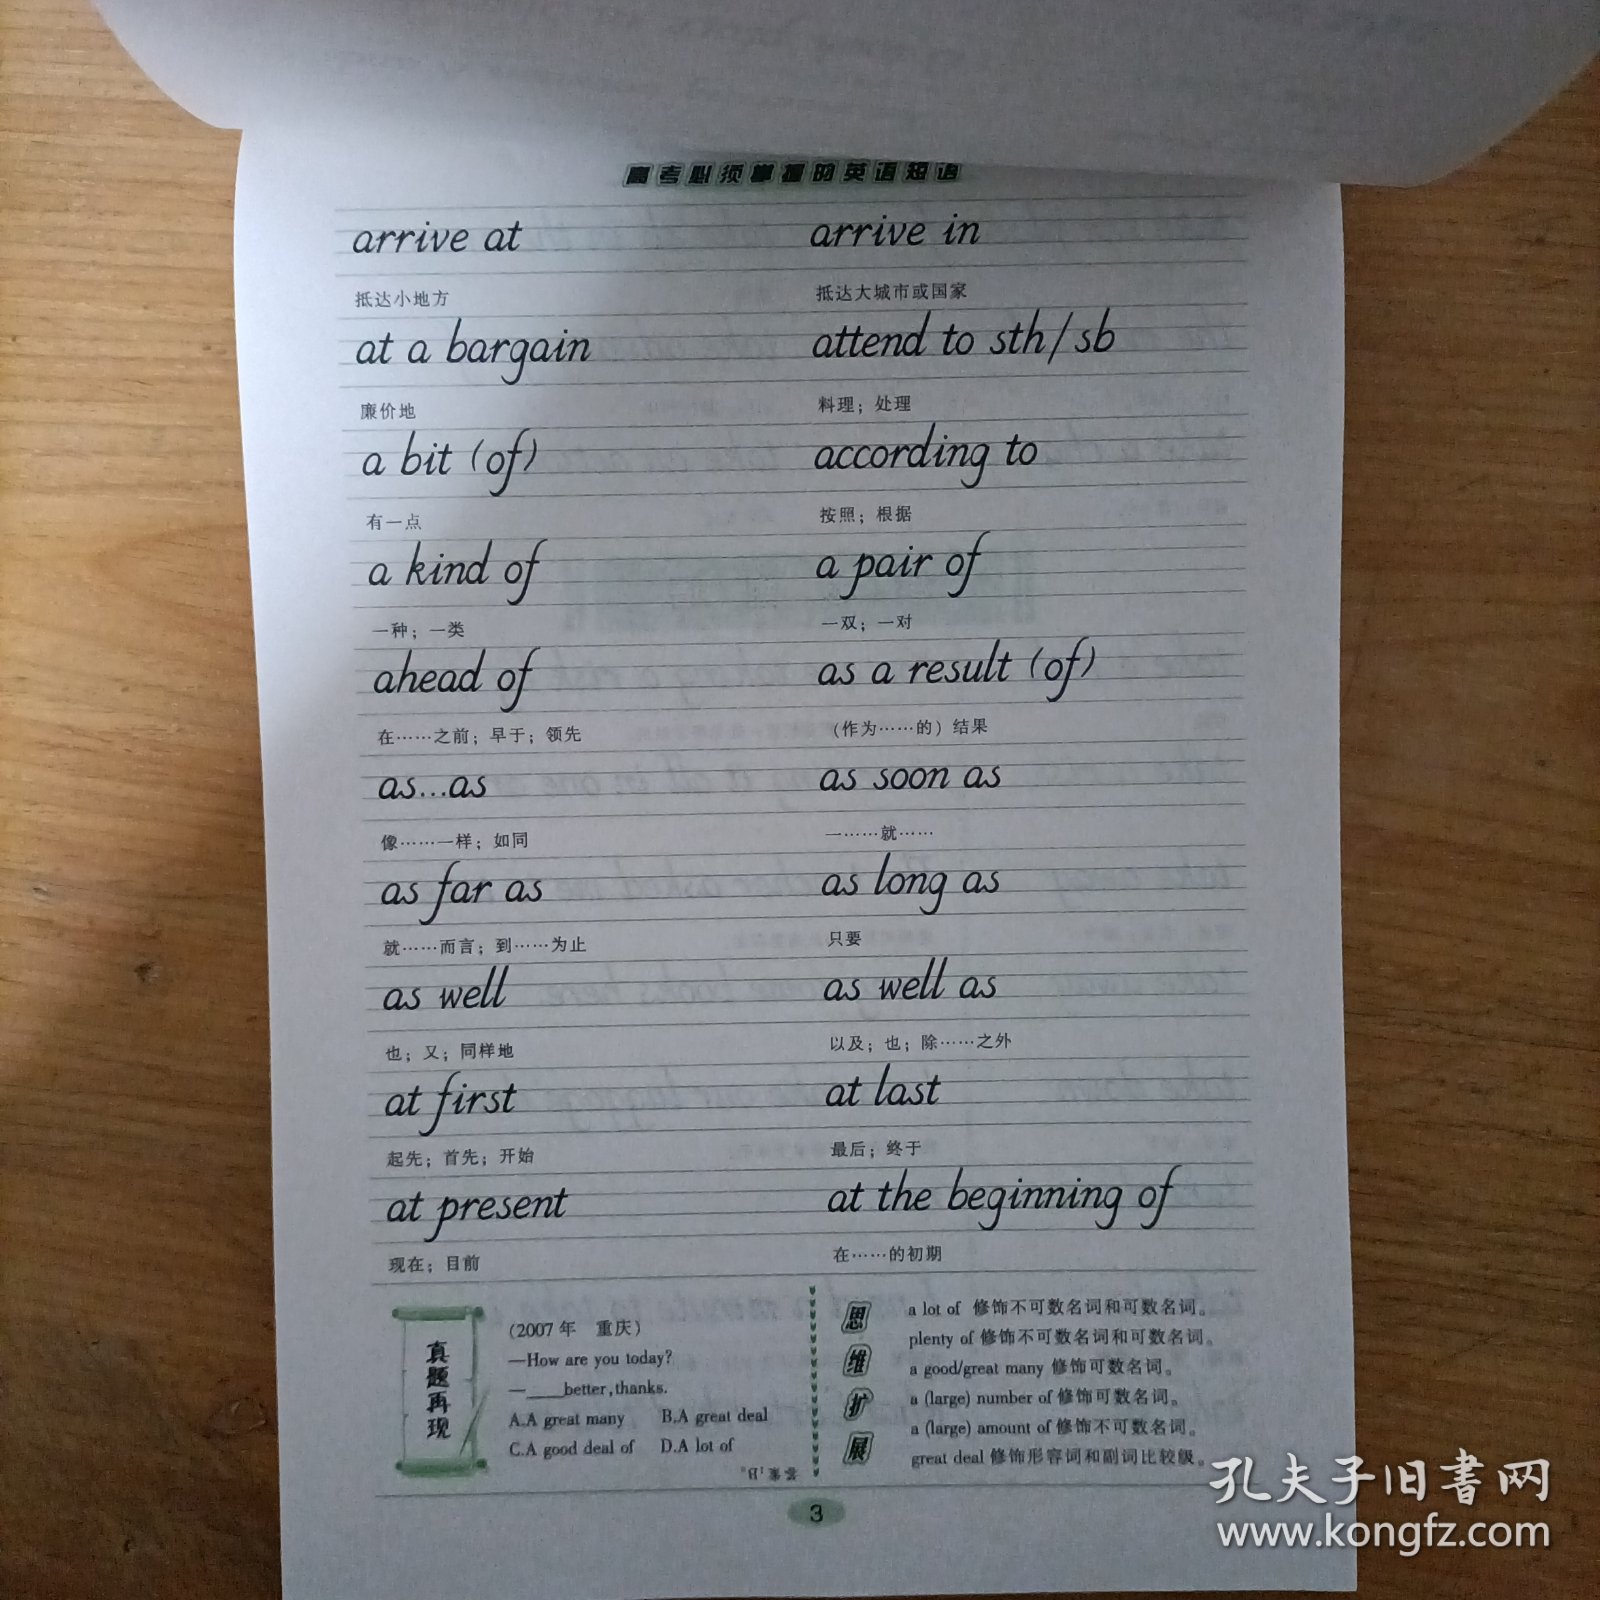 高考必须掌握的英语短语
arrive at arrive in
抵达小地方 抵达大城市或国家
at a bargain attend to sth/sb
廉价地 料理；处理
a bit (of) according to
有一点 按照；根据
a kind of a pair of
一种；一类 一双；一对
ahead of as a result (of)
在……之前；早于；领先 （作为……的）结果
as...as as soon as
像……一样；如同 一……就……
as far as as long as
就……而言；到……为止 只要
as well as well as
也；又；同样地 以及；也；除……之外
at first at last
起先；首先；开始 最后；终于
at present at the beginning of
现在；目前 在……的初期
真题再现
(2007年 重庆)
—How are you today?
—____better,thanks.
A.A great many B.A great deal
C.A good deal of D.A lot of
答案:B。
思维扩展
a lot of 修饰不可数名词和可数名词。
plenty of 修饰不可数名词和可数名词。
a good/great many 修饰可数名词。
a (large) number of 修饰可数名词。
a (large) amount of 修饰不可数名词。
great deal 修饰形容词和副词比较级。
3
孔夫子旧书网
www.kongfz.com